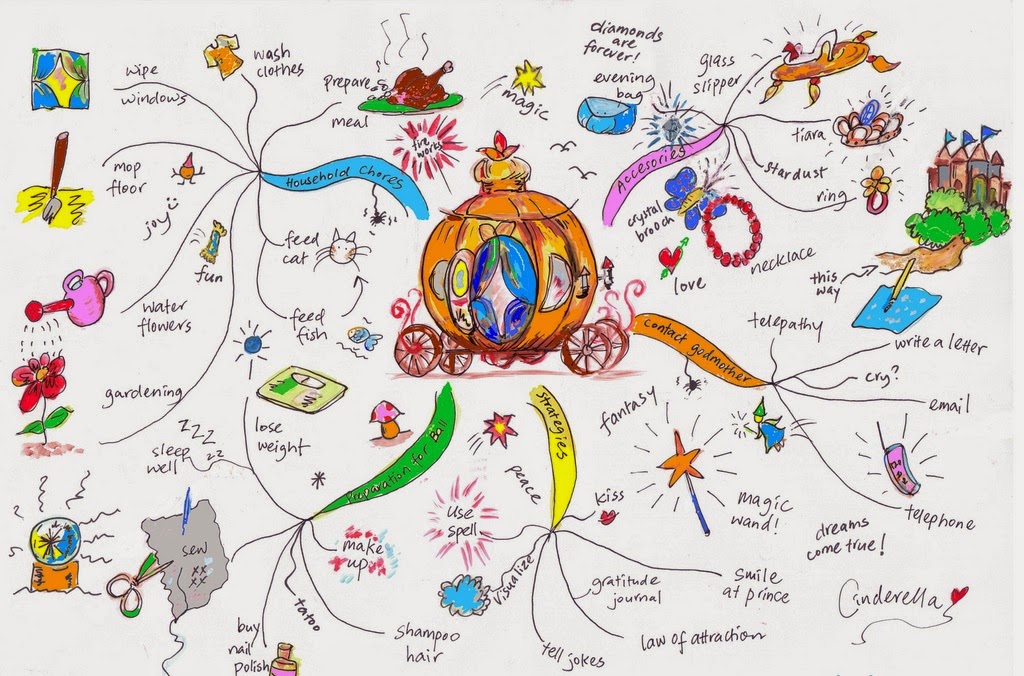 wipe
windows
wash
clothes
prepare
meal
Household Chores
mop
floor
joy
fun
feed
cat
feed
fish
water
flowers
gardening
fire
works
magic
diamonds
are
forever!
evening
bag
glass
slipper
Accesories
tiara
stardust
ring
crystal
brooch
necklace
love
this
way
Contact godmother
telepathy
write a letter
cry?
email
telephone
fantasy
magic
wand!
dreams
come true!
Strategies
peace
kiss
use
spell
visualize
gratitude
journal
smile
at prince
law of attraction
tell jokes
Preparation for Ball
lose
weight
zzz
zz
sleep
well
sew
xx
xx
make
up
tatoo
buy
nail
polish
shampoo
hair
Cinderella